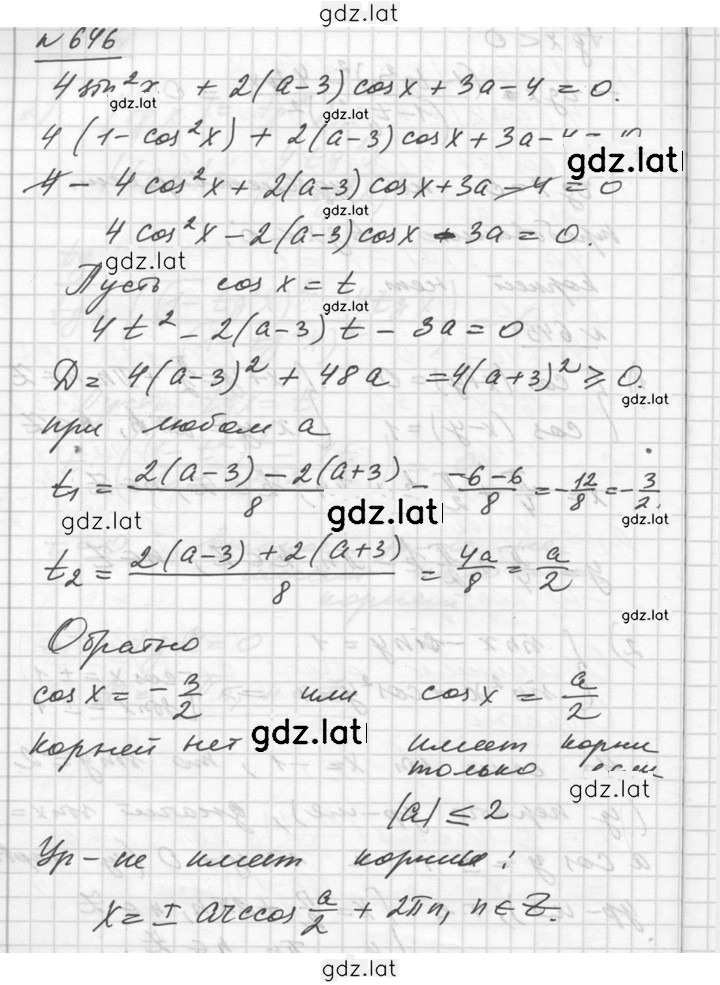 gdz.lat
№ 646
4 sin²x + 2(a-3) cos x + 3a - 4 = 0.
gdz.lat
gdz.lat
4 (1 - cos²x) + 2(a-3) cos x + 3a - 4 = 0
gdz.lat
4 - 4 cos²x + 2(a-3) cos x + 3a - 4 = 0
gdz.lat
4 cos²x - 2(a-3) cos x - 3a = 0.
gdz.lat
Пусть cos x = t
gdz.lat
4t² - 2(a-3) t - 3a = 0
D = 4(a-3)² + 48a = 4(a+3)² ≥ 0.
gdz.lat
при любом a
t₁ = (2(a-3) - 2(a+3))/8 - (-6-6)/8 = -12/8 = -3/2.
gdz.lat gdz.lat gdz.lat
t₂ = (2(a-3) + 2(a+3))/8 = 4a/8 = a/2
gdz.lat
Обратно
cos x = -3/2 или cos x = a/2
gdz.lat
корней нет имеет корни
только если
gdz.lat
|a| ≤ 2
Ур-ие имеет корни:
x = ± arccos a/2 + 2πn, n ∈ Z.
gdz.lat